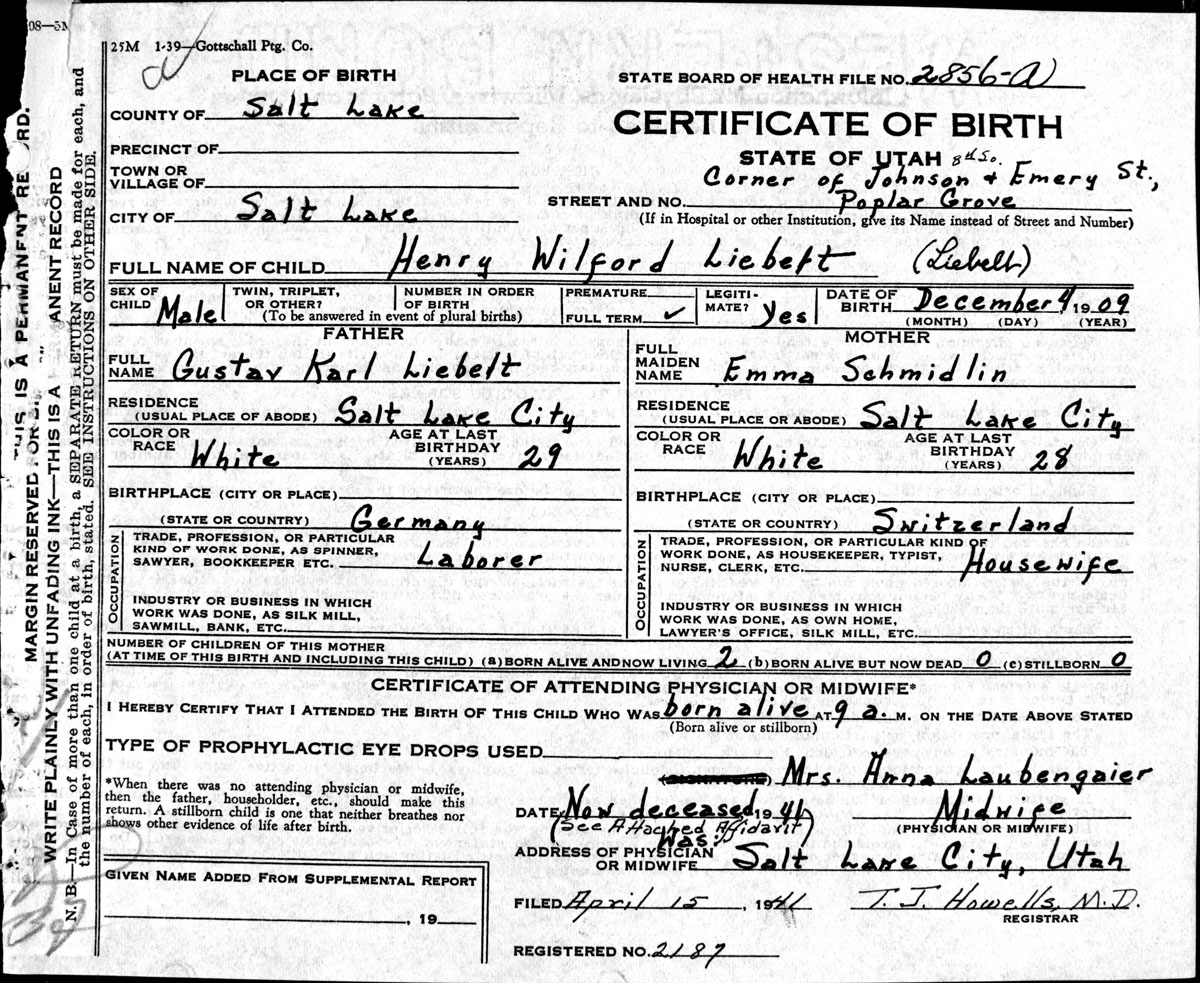 08—5M
25M 1-39—Gottschall Ptg. Co.
PLACE OF BIRTH
COUNTY OF Salt Lake
PRECINCT OF
TOWN OR
VILLAGE OF
CITY OF Salt Lake
STATE BOARD OF HEALTH FILE NO. 2856-A
CERTIFICATE OF BIRTH
STATE OF UTAH 8th So.
Corner of Johnson & Emery St.,
STREET AND NO. Poplar Grove
(If in Hospital or other Institution, give its Name instead of Street and Number)
FULL NAME OF CHILD Henry Wilford Liebelt (Liebelt)
SEX OF
CHILD Male
TWIN, TRIPLET,
OR OTHER?
NUMBER IN ORDER
OF BIRTH
(To be answered in event of plural births)
PREMATURE
FULL TERM ✓
LEGITI-
MATE? Yes
DATE OF
BIRTH December 4, 1909
(MONTH) (DAY) (YEAR)
FATHER
FULL
NAME Gustav Karl Liebelt
RESIDENCE
(USUAL PLACE OF ABODE) Salt Lake City
COLOR OR
RACE White
AGE AT LAST
BIRTHDAY
(YEARS) 29
BIRTHPLACE (CITY OR PLACE)
(STATE OR COUNTRY) Germany
OCCUPATION
TRADE, PROFESSION, OR PARTICULAR
KIND OF WORK DONE, AS SPINNER,
SAWYER, BOOKKEEPER ETC. Laborer
INDUSTRY OR BUSINESS IN WHICH
WORK WAS DONE, AS SILK MILL,
SAWMILL, BANK, ETC.
MOTHER
FULL
MAIDEN
NAME Emma Schmidlin
RESIDENCE
(USUAL PLACE OR ABODE) Salt Lake City
COLOR OR
RACE White
AGE AT LAST
BIRTHDAY
(YEARS) 28
BIRTHPLACE (CITY OR PLACE)
(STATE OR COUNTRY) Switzerland
OCCUPATION
TRADE, PROFESSION, OR PARTICULAR KIND OF
WORK DONE, AS HOUSEKEEPER, TYPIST,
NURSE, CLERK, ETC. Housewife
INDUSTRY OR BUSINESS IN WHICH
WORK WAS DONE, AS OWN HOME,
LAWYER'S OFFICE, SILK MILL, ETC.
NUMBER OF CHILDREN OF THIS MOTHER
(AT TIME OF THIS BIRTH AND INCLUDING THIS CHILD) (a) BORN ALIVE AND NOW LIVING 2 (b) BORN ALIVE BUT NOW DEAD 0 (c) STILLBORN 0
CERTIFICATE OF ATTENDING PHYSICIAN OR MIDWIFE*
I HEREBY CERTIFY THAT I ATTENDED THE BIRTH OF THIS CHILD WHO WAS born alive AT 9 a. M. ON THE DATE ABOVE STATED
(Born alive or stillborn)
TYPE OF PROPHYLACTIC EYE DROPS USED
*When there was no attending physician or midwife,
then the father, householder, etc., should make this
return. A stillborn child is one that neither breathes nor
shows other evidence of life after birth.
Mrs. Anna Laubengaier
DATE Now deceased 1941 Midwife
(See Attached Affidavit) (PHYSICIAN OR MIDWIFE)
Was:
ADDRESS OF PHYSICIAN
OR MIDWIFE Salt Lake City, Utah
GIVEN NAME ADDED FROM SUPPLEMENTAL REPORT
, 19
FILED April 15, 1941 T. J. Howells, M.D.
REGISTRAR
REGISTERED NO. 2187
MARGIN RESERVED FOR
THIS IS A PERMANENT RECORD.
WRITE PLAINLY WITH UNFADING INK—THIS IS A PERMANENT RECORD
N. B.—In Case of more than one child at a birth, a SEPARATE RETURN must be made for each, and
the number of each, in order of birth, stated. SEE INSTRUCTIONS ON OTHER SIDE.